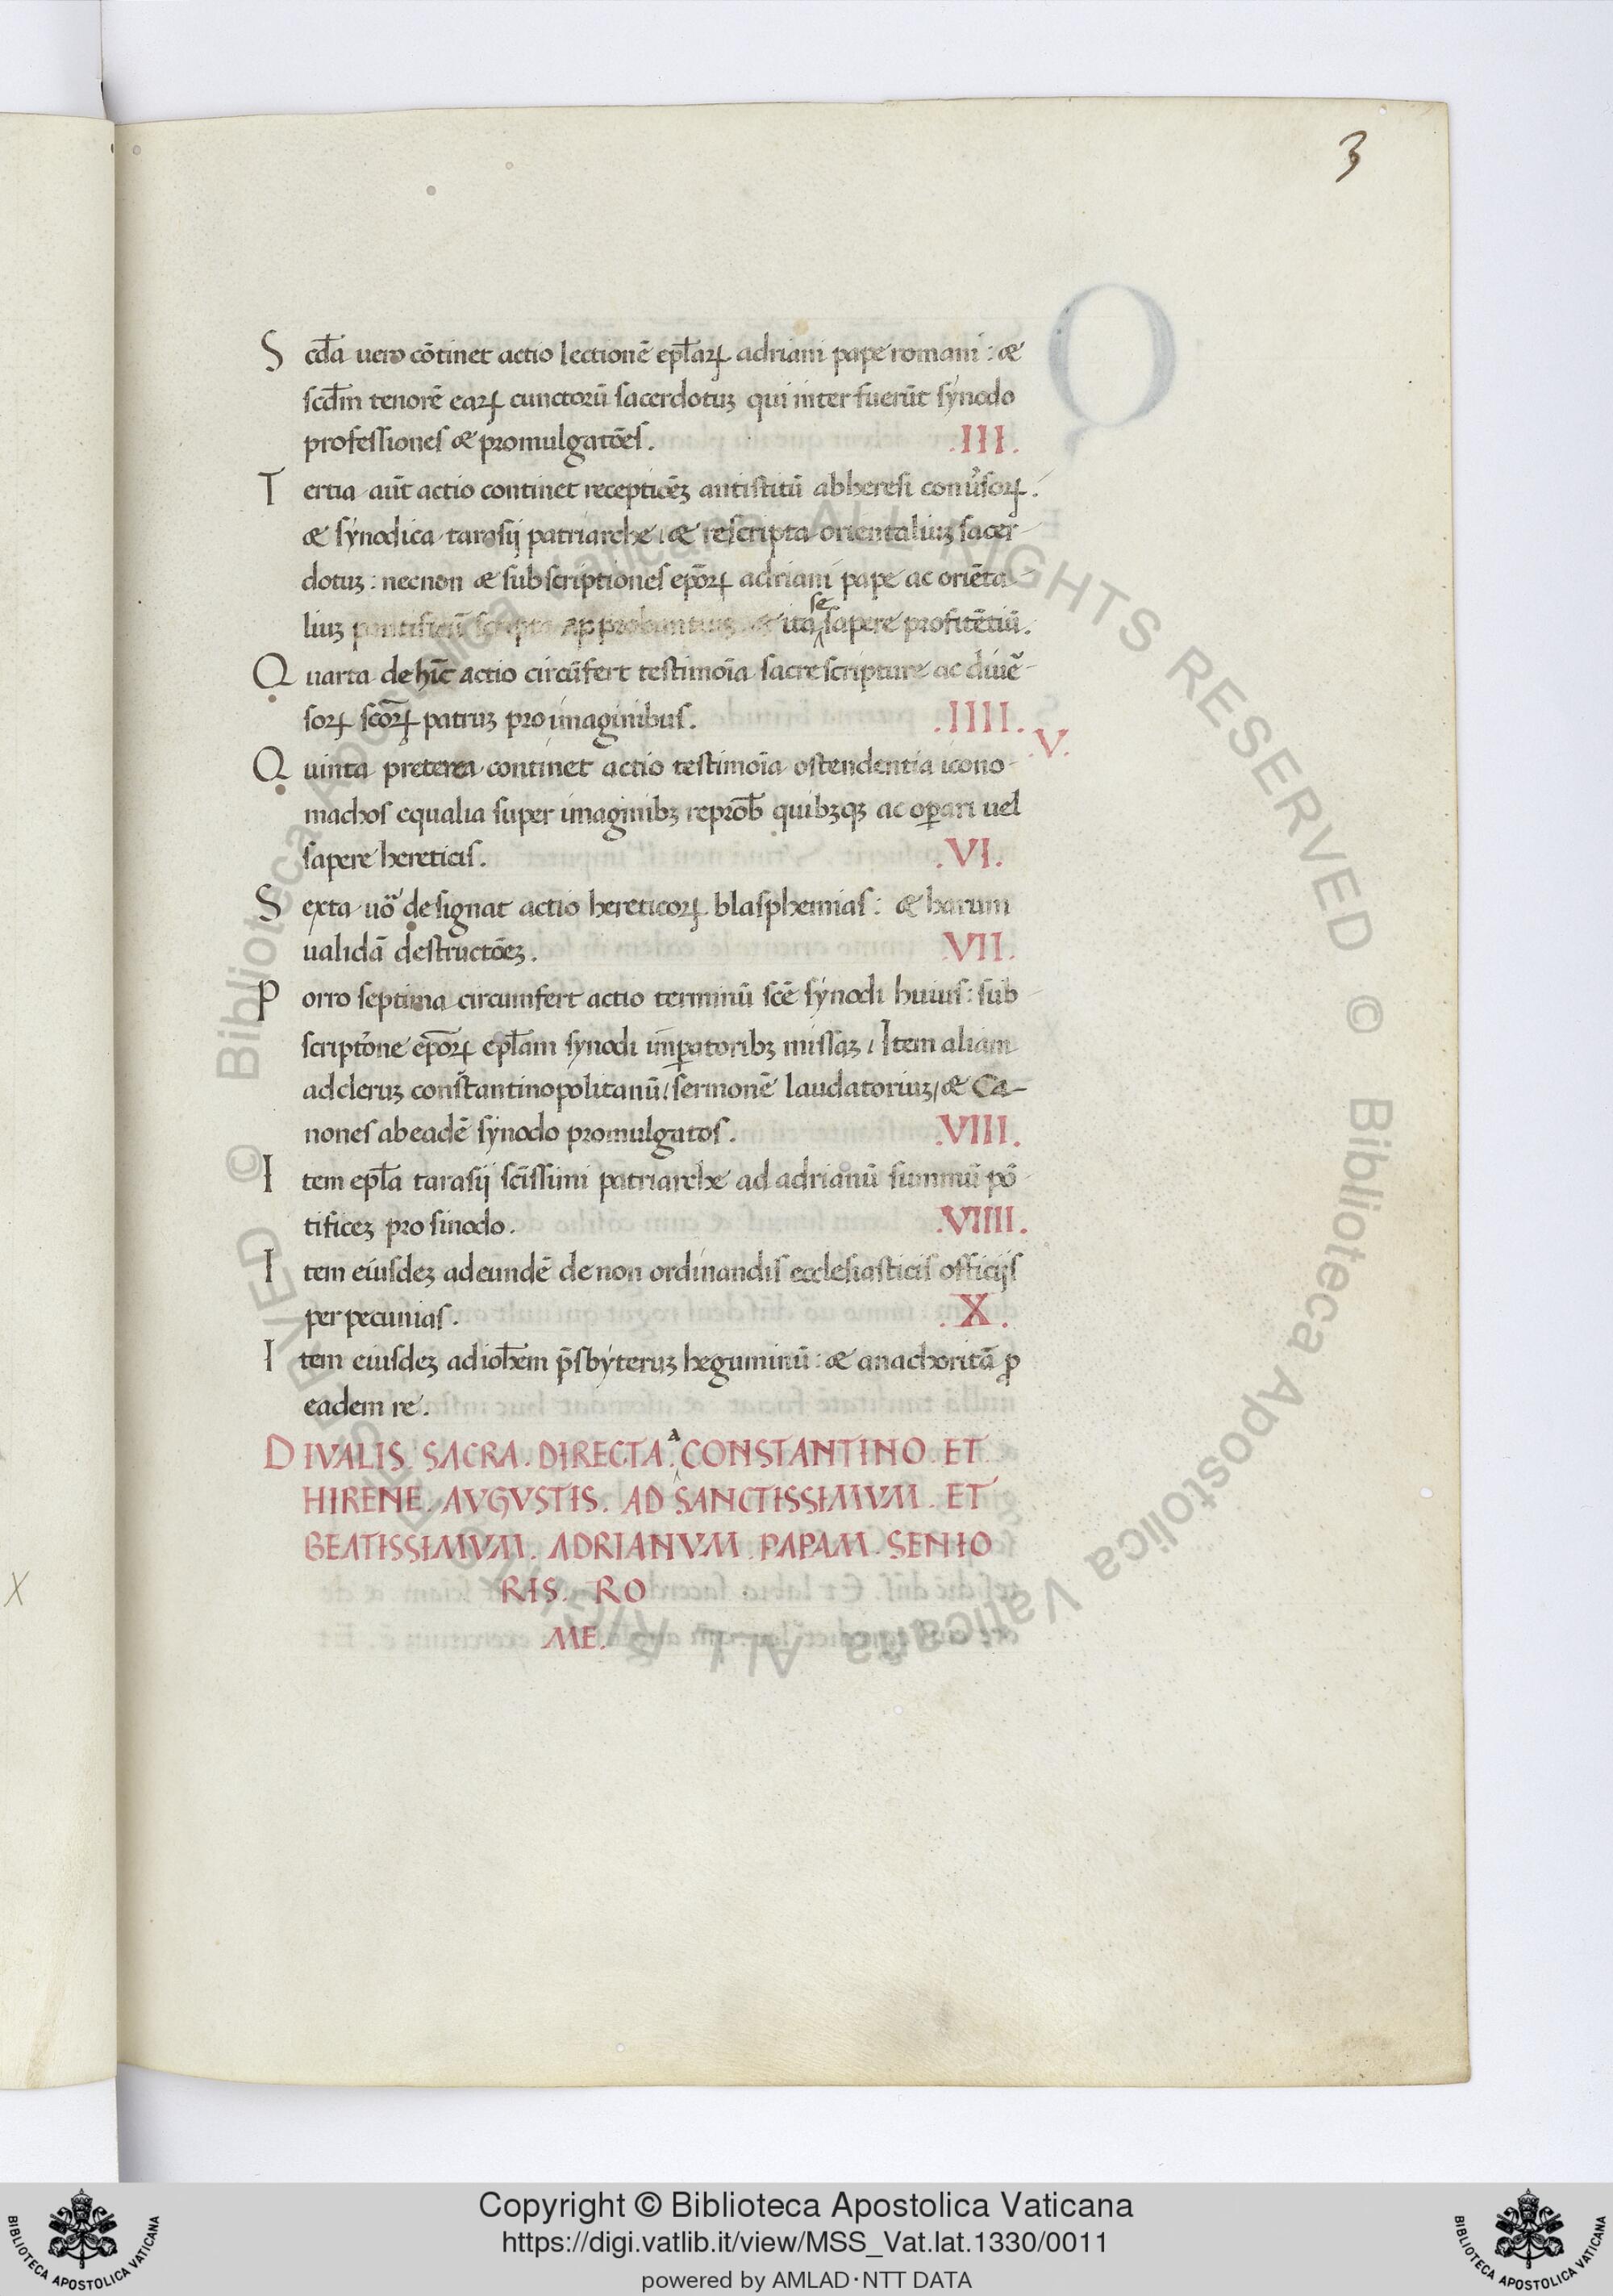 3
Scd̄a uero cōtinet actio lectionē ep̄larꝝ adriani pape romani : æ
scd̄m tenorē earꝝ cunctorū sacerdotuꝫ qui inter fuerūt synodo
professiones æ promulgatōes . .III.
Tertia aūt actio continet recepticēꝫ antistitū ab heresi conu̓sorꝝ .
æ synodica tarasij patriarche , æ rescripta orientaliuꝫ sacer-
dotuꝫ : necnon æ subscriptiones ep̄orꝝ adriani pape ac oriēta-
liuꝫ pontificū scripta approbantiuꝫ æ ita se sapere profitētiū .
Quarta dehīc actio circūfert testimoīa sacre scripture ac diuē-
sorꝝ sc̄orꝝ patruꝫ pro imaginibus . .IIII.
.V.
Quinta preterea continet actio testimoīa ostendentia icono-
machos equalia super imaginibꝫ reprob̄ quibꝫqꝫ ac oꝑari uel
sapere hereticis . .VI.
Sexta uo̓ designat actio hereticorꝝ blasphemias : æ harum
ualidā destructōeꝫ . VII.
Porro septima circumfert actio terminū scē synodi huius : sub-
scripto̓ne ep̄orꝝ ep̄lam synodi imꝑatoribꝫ missaꝫ , Item aliam
ad cleruꝫ constantinopolitanū , sermonē laudatoriuꝫ , æ Ca-
nones ab eadē synodo promulgatos . .VIII.
Item ep̄la tarasij sc̄issimi patriarche ad adrianū summū pō-
tificeꝫ pro sinodo . .VIIII.
Item eiusdeꝫ ad eundē de non ordinandis ecclesiasticis officijs
per pecunias . .X.
Item eiusdeꝫ ad ioh̄em p̄sbyteruꝫ heguminū : æ anachoritā ꝓ
eadem re .
DIVALIS . SACRA . DIRECTA . a CONSTANTINO ET
HIRENE . AVGVSTIS . AD SANCTISSIMVM . ET
BEATISSIMVM . ADRIANVM . PAPAM . SENIO
RIS . RO
ME.
X
Copyright © Biblioteca Apostolica Vaticana
https://digi.vatlib.it/view/MSS_Vat.lat.1330/0011
powered by AMLAD·NTT DATA
BIBLIOTECA APOSTOLICA VATICANA
BIBLIOTECA APOSTOLICA VATICANA
© Biblioteca Apostolica Vaticana ALL RIGHTS RESERVED © Biblioteca Apostolica Vaticana ALL RIGHTS RESERVED